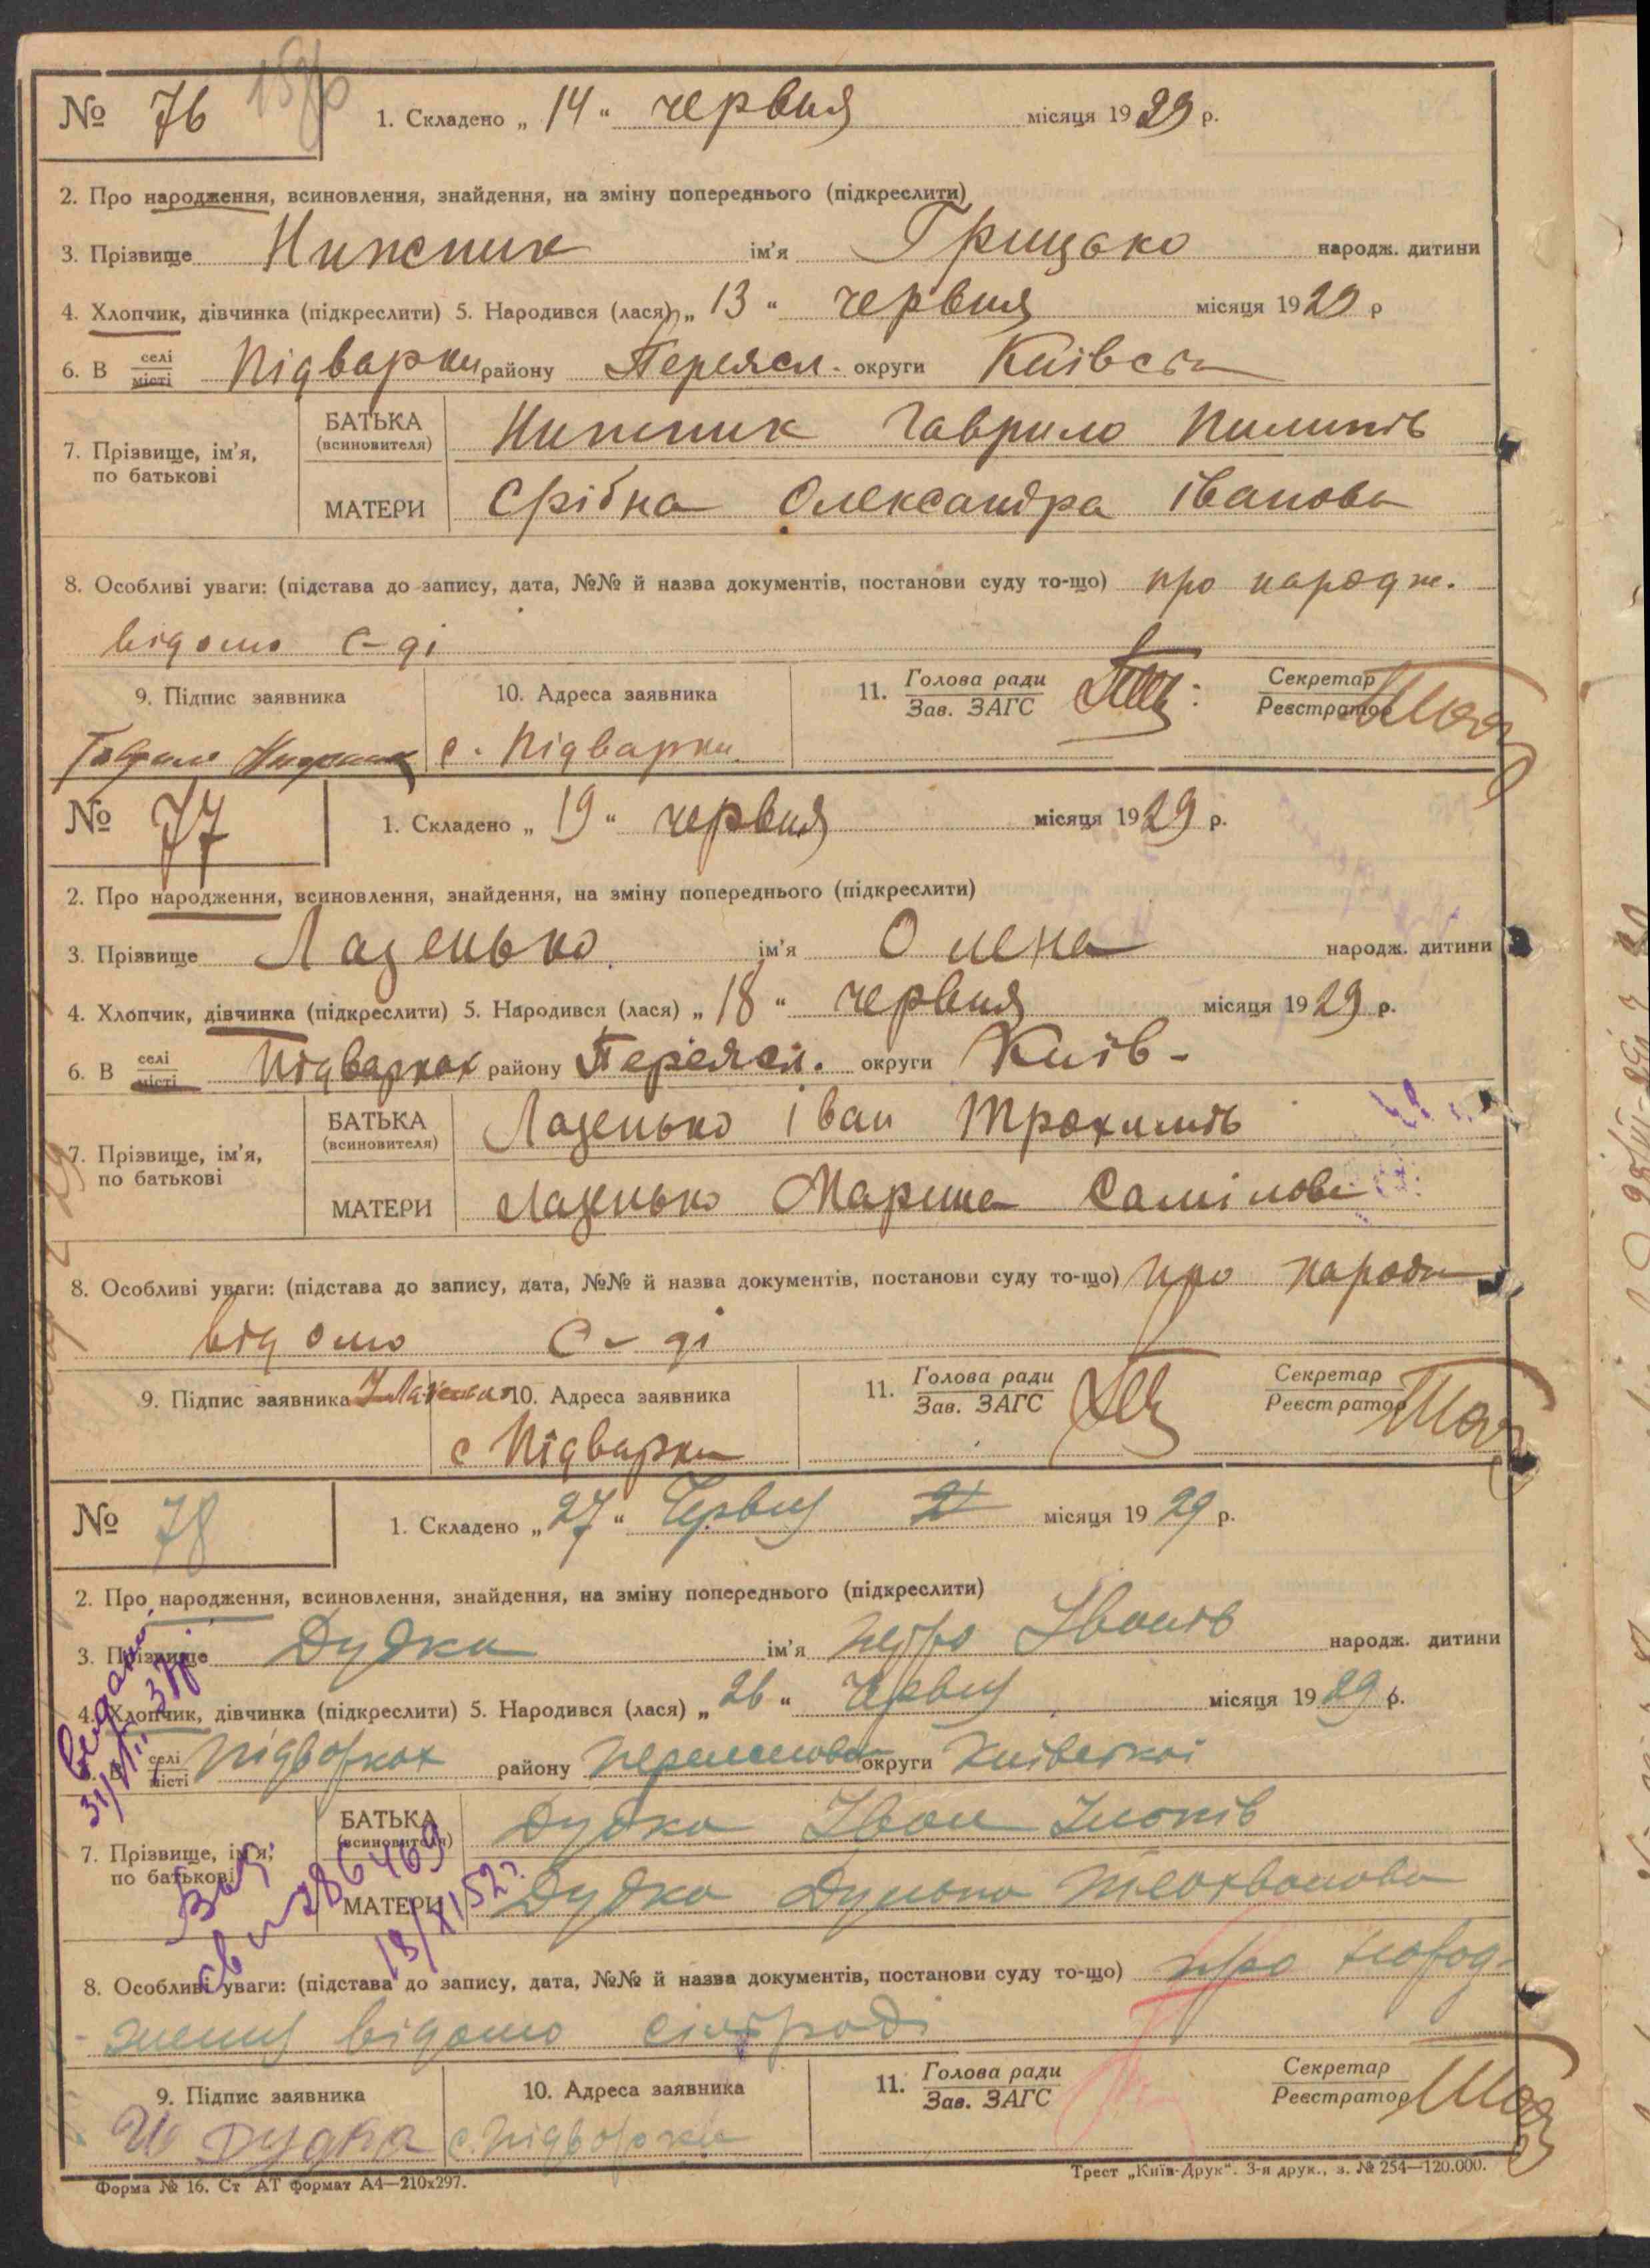 № 76
1. Складено „ 14 “ червня місяця 1929 р.
2. Про народження, всиновлення, знайдення, на зміну попереднього (підкреслити)
3. Прізвище Нижник ім'я Грицько народж. дитини
4. Хлопчик, дівчинка (підкреслити) 5. Народився (лася) „ 13 “ червня місяця 1929 р
6. В селі місті Підварки району Переясл. округи Київськ
7. Прізвище, ім'я, по батькові
БАТЬКА (всиновителя) Нижник Гаврило Пилипів
МАТЕРИ Срібна Олександра Іванова
8. Особливі уваги: (підстава до запису, дата, №№ й назва документів, постанови суду то-що) про народж.
відомо с-ді
9. Підпис заявника 10. Адреса заявника 11. Голова ради Зав. ЗАГС Секретар Реєстратор
Гаврило Нижник с. Підварки
№ 77
1. Складено „ 19 “ червня місяця 1929 р.
2. Про народження, всиновлення, знайдення, на зміну попереднього (підкреслити)
3. Прізвище Лазенько ім'я Олена народж. дитини
4. Хлопчик, дівчинка (підкреслити) 5. Народився (лася) „ 18 “ червня місяця 1929 р.
6. В селі місті Підварках району Переясл. округи Київ-
7. Прізвище, ім'я, по батькові
БАТЬКА (всиновителя) Лазенько Іван Трохимів
МАТЕРИ Лазенько Марина Самілова
8. Особливі уваги: (підстава до запису, дата, №№ й назва документів, постанови суду то-що) про народж
відомо с-ді
9. Підпис заявника 10. Адреса заявника 11. Голова ради Зав. ЗАГС Секретар Реєстратор
с Підварки
№ 78
1. Складено „ 27 “ Червня місяця 1929 р.
2. Про народження, всиновлення, знайдення, на зміну попереднього (підкреслити)
3. Прізвище Дудка ім'я Петро Іванів народж. дитини
4. Хлопчик, дівчинка (підкреслити) 5. Народився (лася) „ 26 “ Червня місяця 1929 р.
6. В селі місті Підварках району Переяславськ округи Київської
7. Прізвище, ім'я, по батькові
БАТЬКА (всиновителя) Дудка Іван
МАТЕРИ Дудка
8. Особливі уваги: (підстава до запису, дата, №№ й назва документів, постанови суду то-що) про народ-
ження відомо сільраді
9. Підпис заявника 10. Адреса заявника 11. Голова ради Зав. ЗАГС Секретар Реєстратор
И Дудка с. Підварки
Форма № 16. Ст АТ формат А4—210х297.
Трест „Київ-Друк“. 3-я друк., з. № 254—120.000.